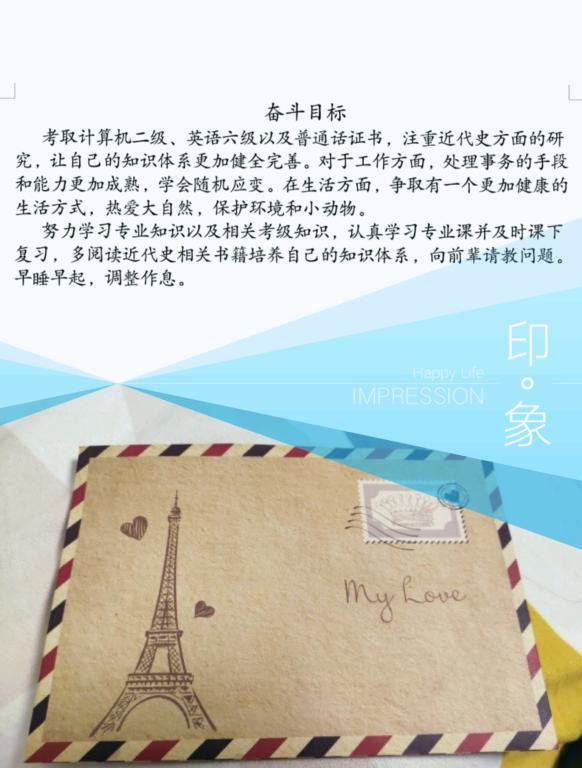 奋斗目标
考取计算机二级、英语六级以及普通话证书，注重近代史方面的研
究，让自己的知识体系更加健全完善。对于工作方面，处理事务的手段
和能力更加成熟，学会随机应变。在生活方面，争取有一个更加健康的
生活方式，热爱大自然，保护环境和小动物。
努力学习专业知识以及相关考级知识，认真学习专业课并及时课下
复习，多阅读近代史相关书籍培养自己的知识体系，向前辈请教问题。
早睡早起，调整作息。
印
象
Happy Life
IMPRESSION
My Love